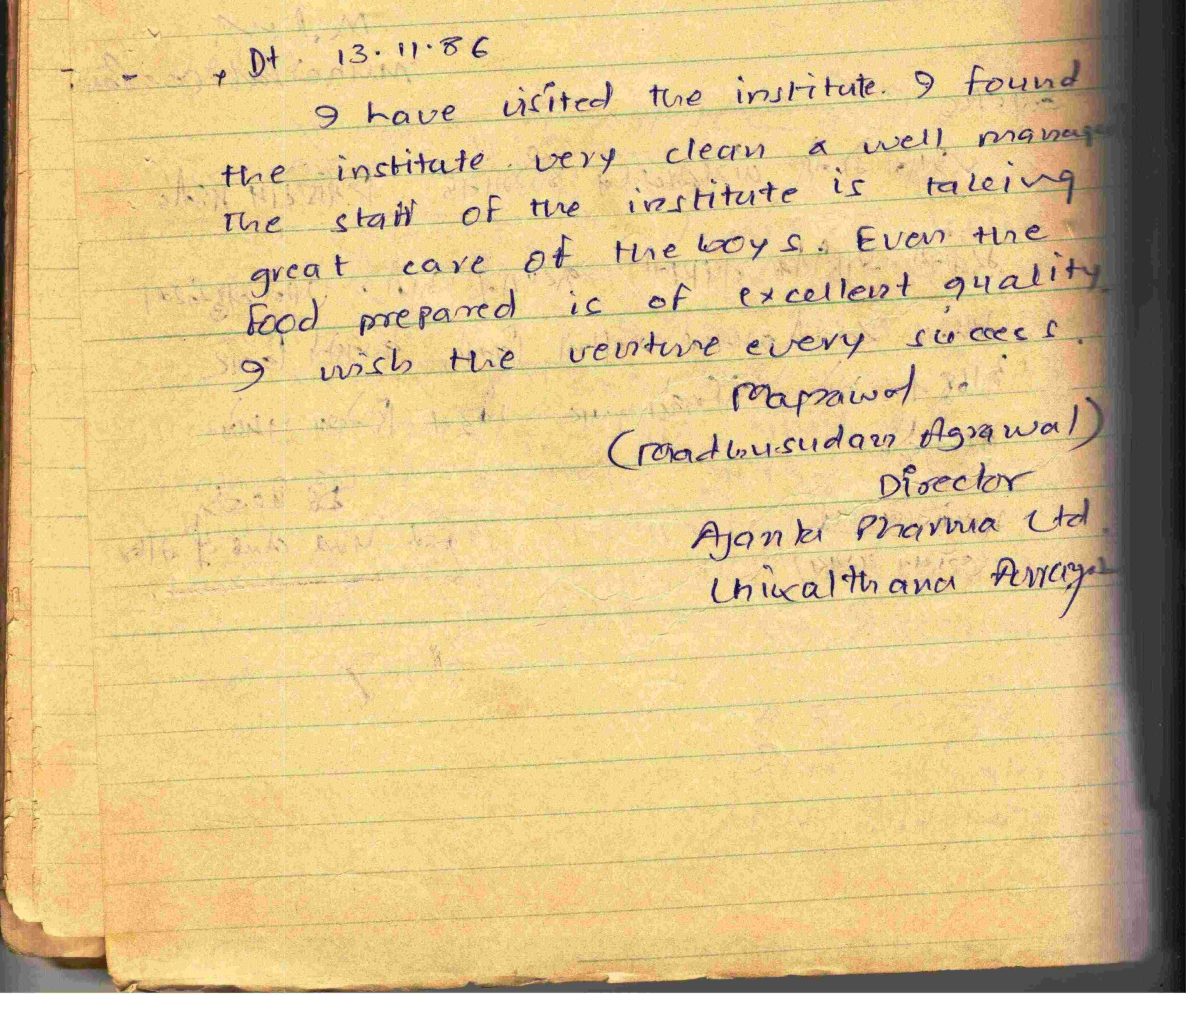 Dt 13.11.86
I have visited the institute. I found
the institute very clean & well manage
The staff of the institute is taking
great care of the boys. Even the
food prepared is of excellent quality
I wish the venture every success.
(Madhusudan Agrawal)
Director
Ajanta Pharma Ltd.
Chikalthana